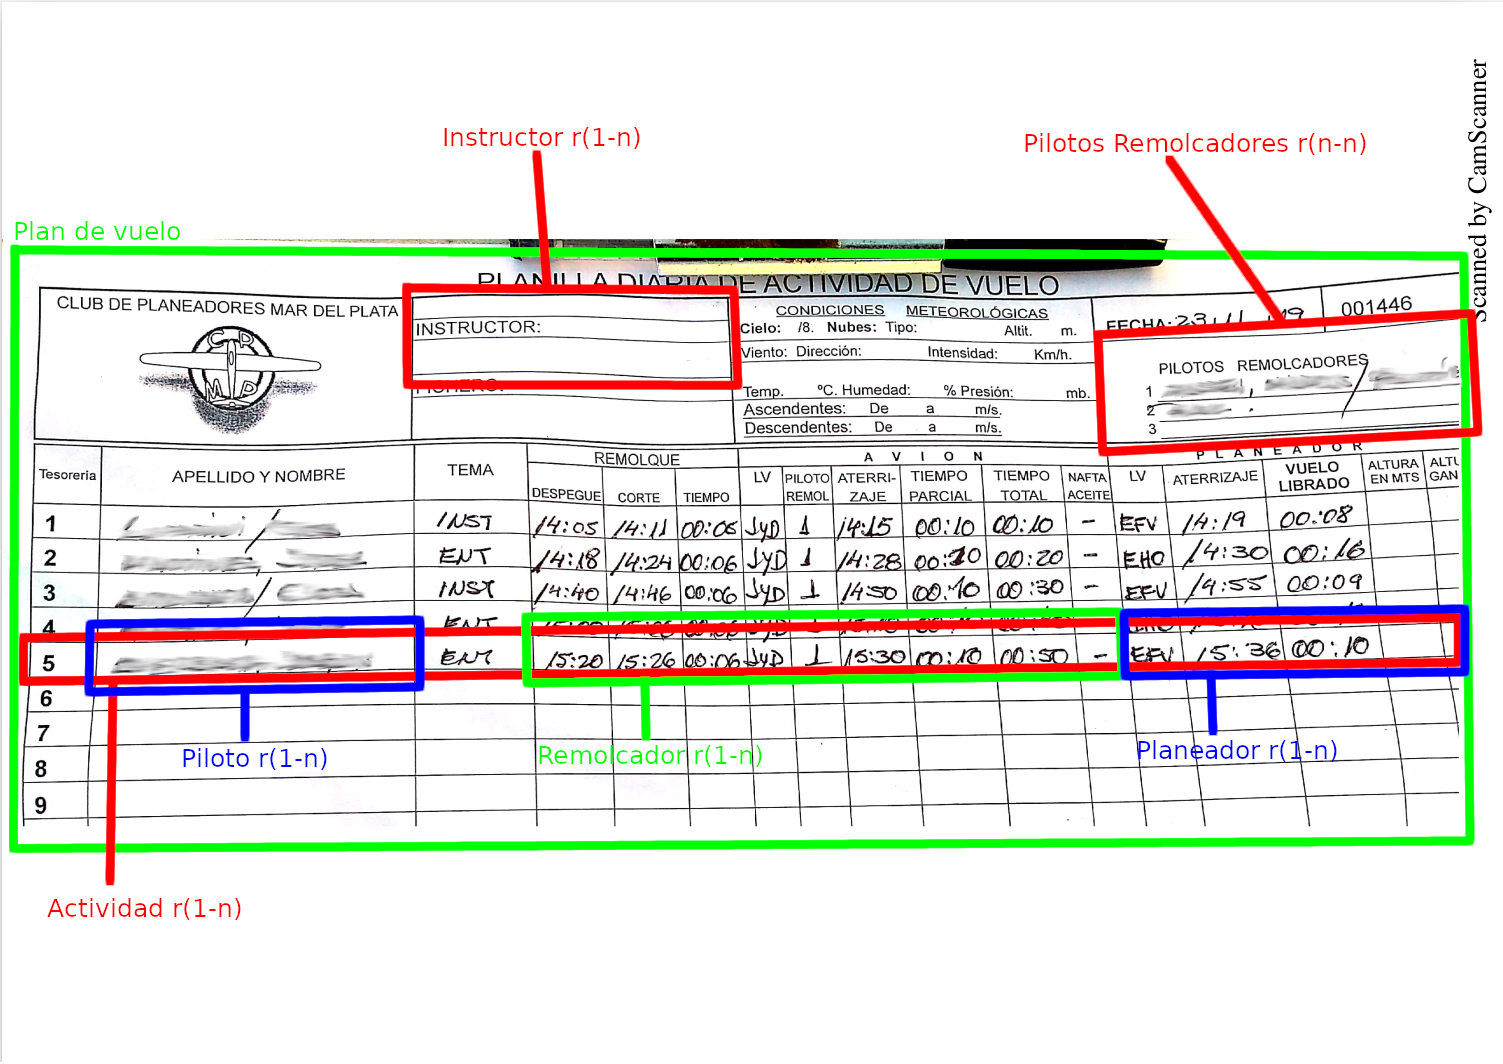 Scanned by CamScanner
Instructor r(1-n)
Pilotos Remolcadores r(n-n)
Plan de vuelo
PLANILLA DIARIA DE ACTIVIDAD DE VUELO
CLUB DE PLANEADORES MAR DEL PLATA
INSTRUCTOR:
FICHERO:
CONDICIONES METEOROLÓGICAS
Cielo: /8. Nubes: Tipo: Altit. m.
Viento: Dirección: Intensidad: Km/h.
Temp. ºC. Humedad: % Presión: mb.
Ascendentes: De a m/s.
Descendentes: De a m/s.
FECHA: 23 11 19
001446
PILOTOS REMOLCADORES
1
2
3
Tesoreria APELLIDO Y NOMBRE TEMA REMOLQUE AVION PLANEADOR
DESPEGUE CORTE TIEMPO LV PILOTO REMOL ATERRI-ZAJE TIEMPO PARCIAL TIEMPO TOTAL NAFTA ACEITE LV ATERRIZAJE VUELO LIBRADO ALTURA EN MTS
1 INST 14:05 14:11 00:05 JyD 1 14:15 00:10 00:10 - EFV 14:19 00:08
2 ENT 14:18 14:24 00:06 JyD 1 14:28 00:10 00:20 - EHO 14:30 00:16
3 INST 14:40 14:46 00:06 JyD 1 14:50 00:10 00:30 - EFV 14:55 00:09
4 ENT
5 ENT 15:20 15:26 00:06 JyD 1 15:30 00:10 00:50 - EFV 15:36 00:10
6
7
8
9
Piloto r(1-n)
Remolcador r(1-n)
Planeador r(1-n)
Actividad r(1-n)